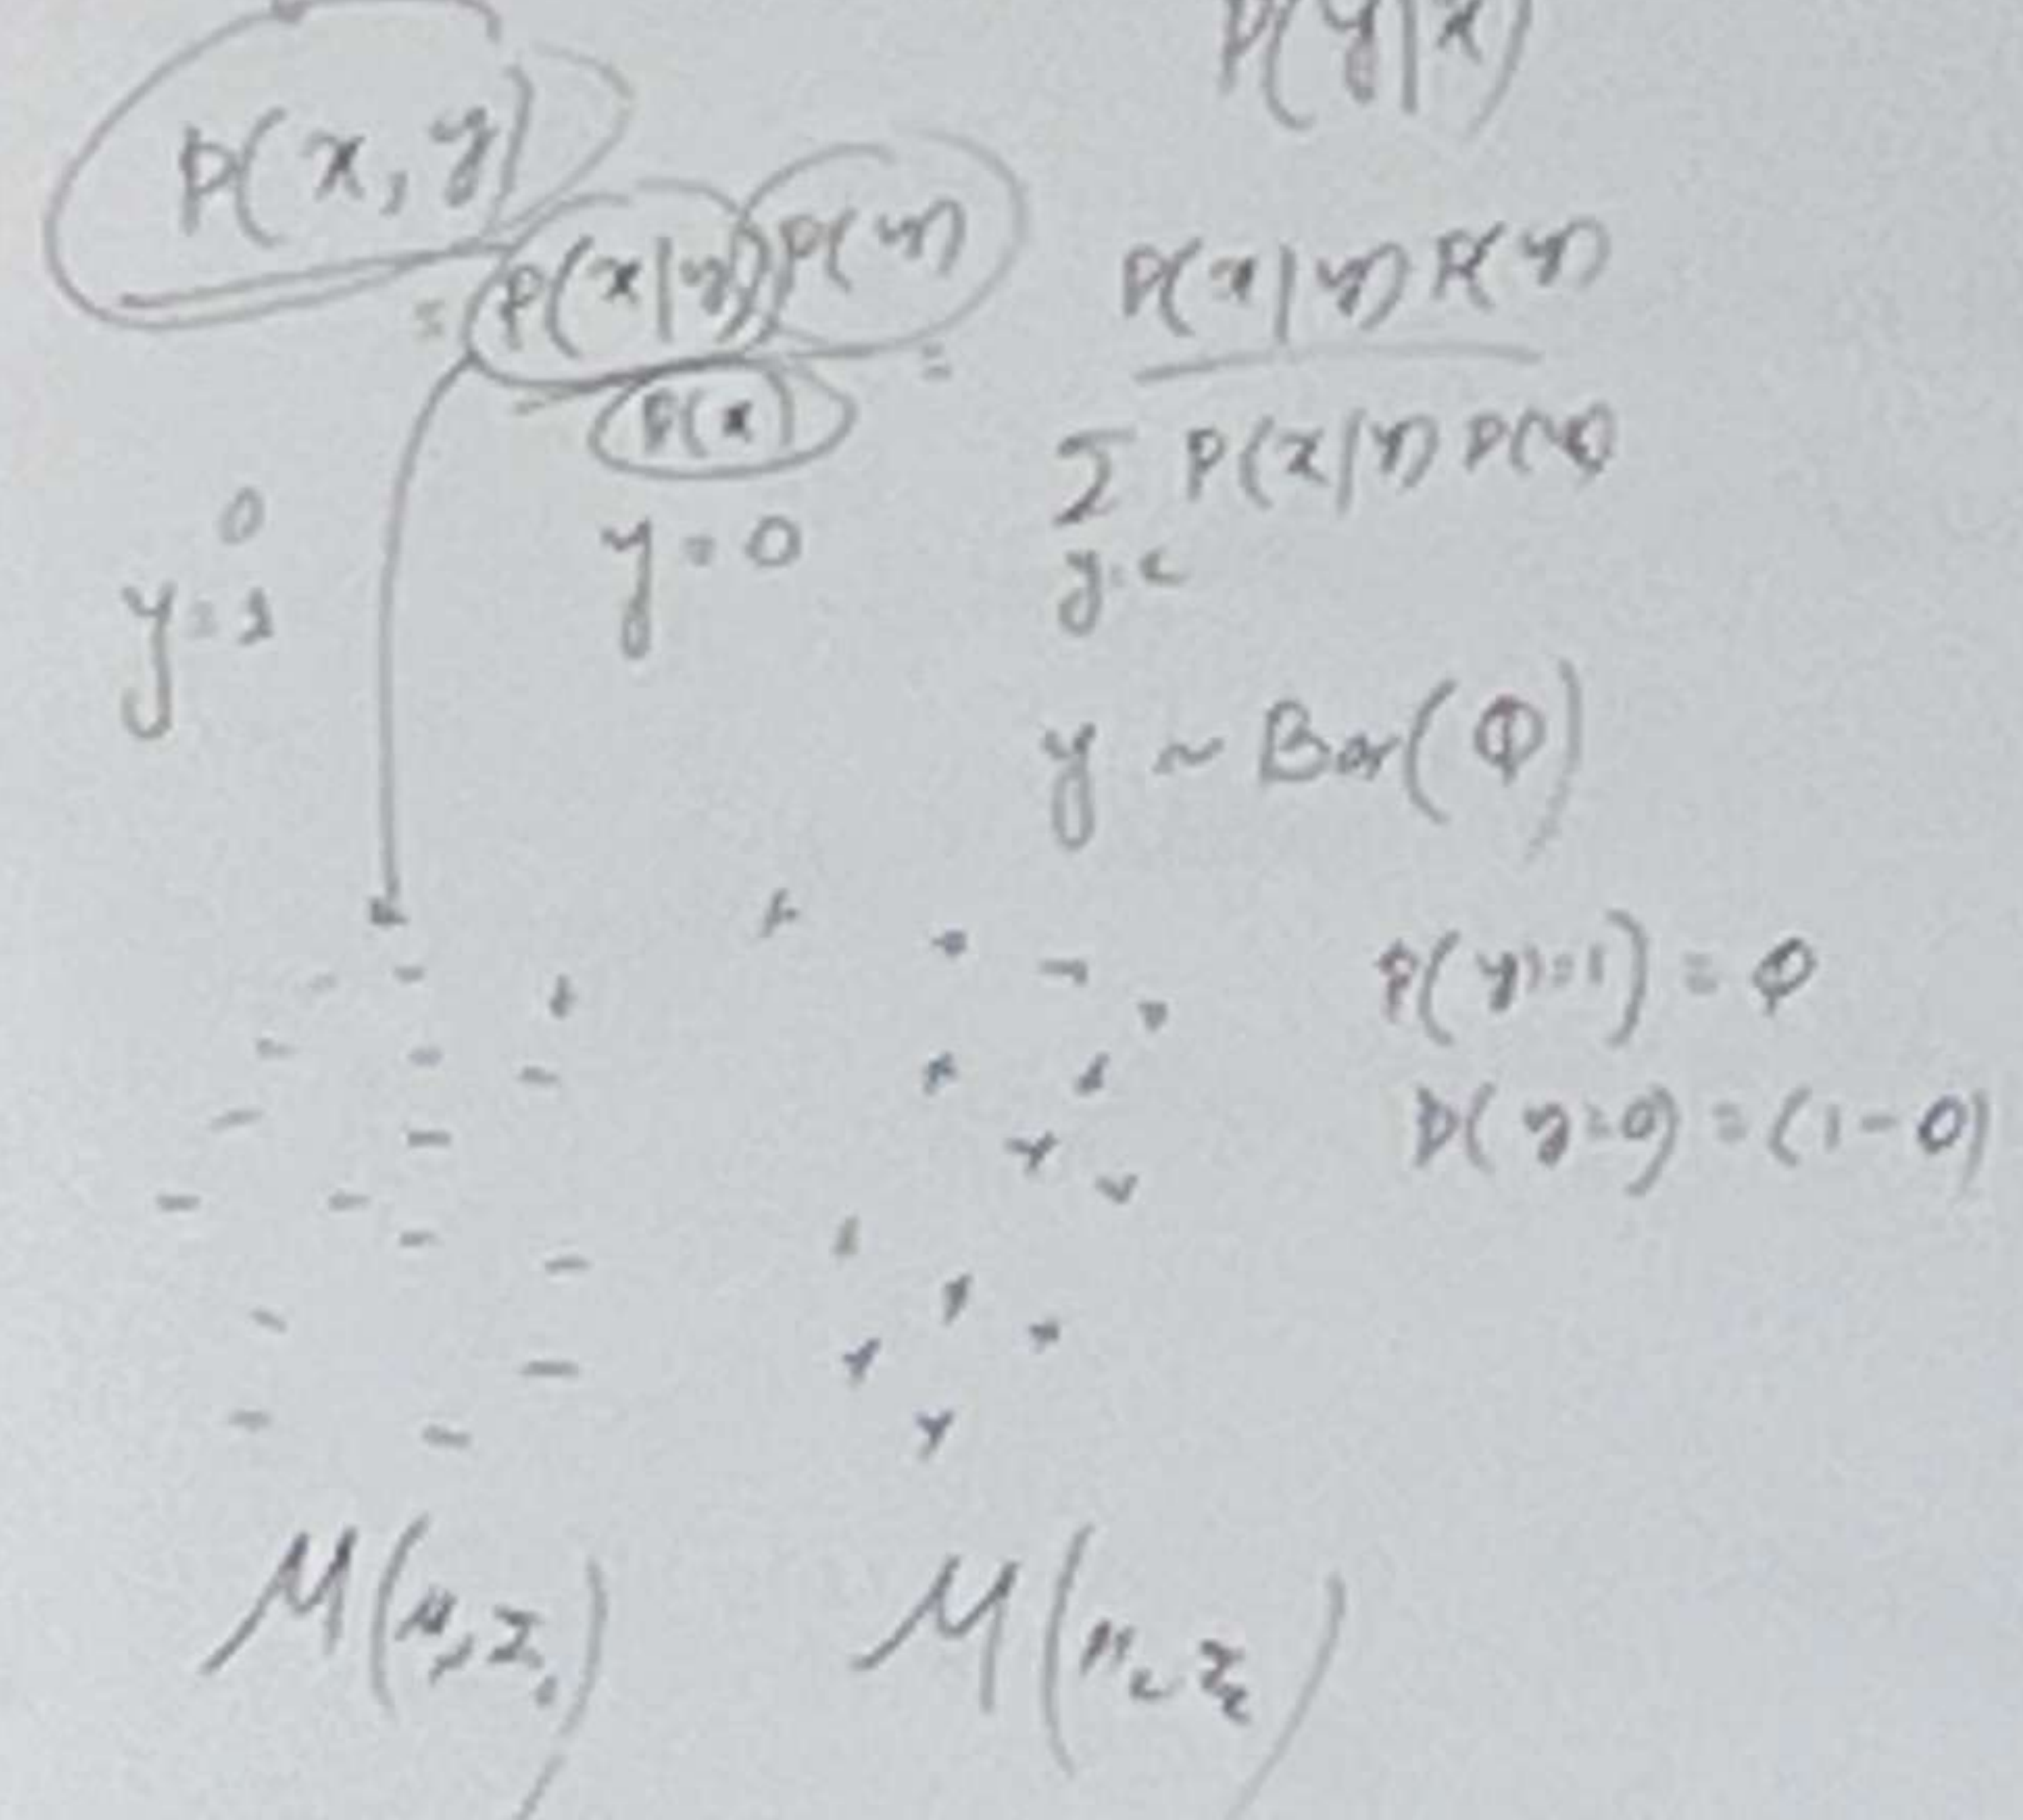 P(y|x)
P(x, y)
= P(x|y) P(y) / P(x) = P(x|y) P(y) / Σ P(x|y) P(y)
y=c
0
y=1
y=0
y ~ Ber(Φ)
P(y=1) = Φ
P(y=0) = (1-Φ)
N(μ, Σ₁) N(μ₂ Σ₂)